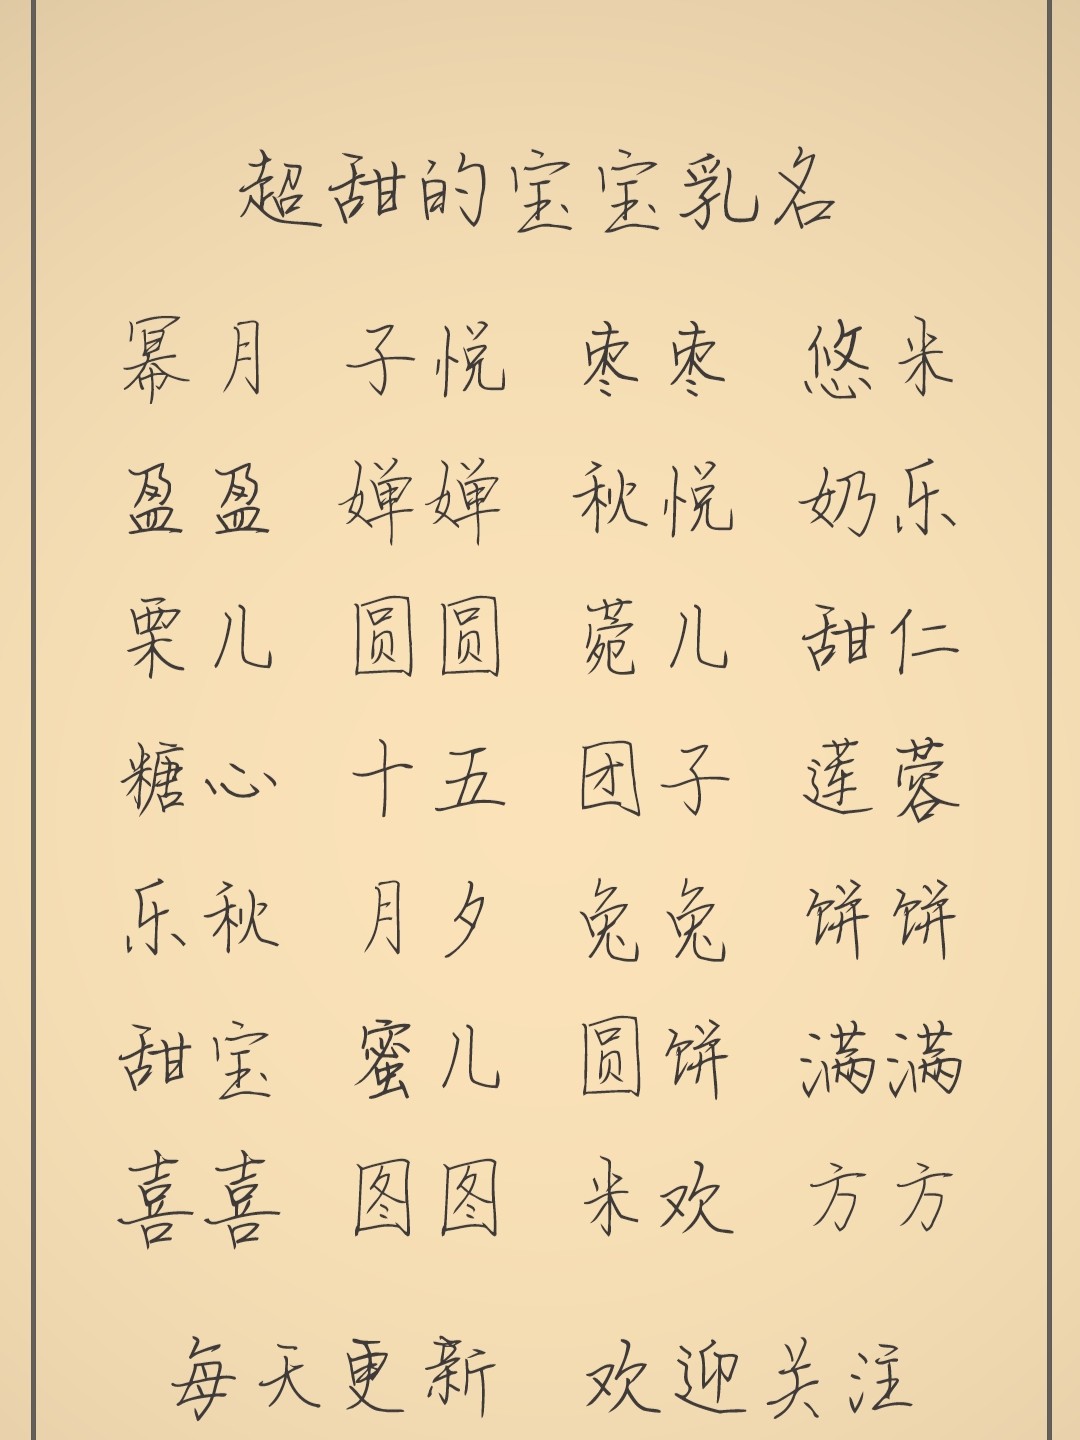 超甜的宝宝乳名
幂月 子悦 枣枣 悠米
盈盈 婵婵 秋悦 奶乐
栗儿 圆圆 菀儿 甜仁
糖心 十五 团子 莲蓉
乐秋 月夕 兔兔 饼饼
甜宝 蜜儿 圆饼 满满
喜喜 图图 米欢 方方
每天更新 欢迎关注